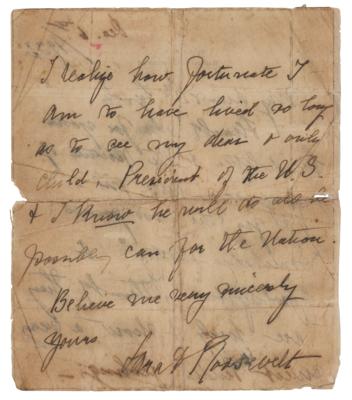 Dec. 6
I realize how fortunate I
am to have lived so long
as to see my dear & only
child, President of the U.S.
& I know he will do all
possibly can for the Nation.
Believe me very sincerely
Yours
Sara D Roosevelt